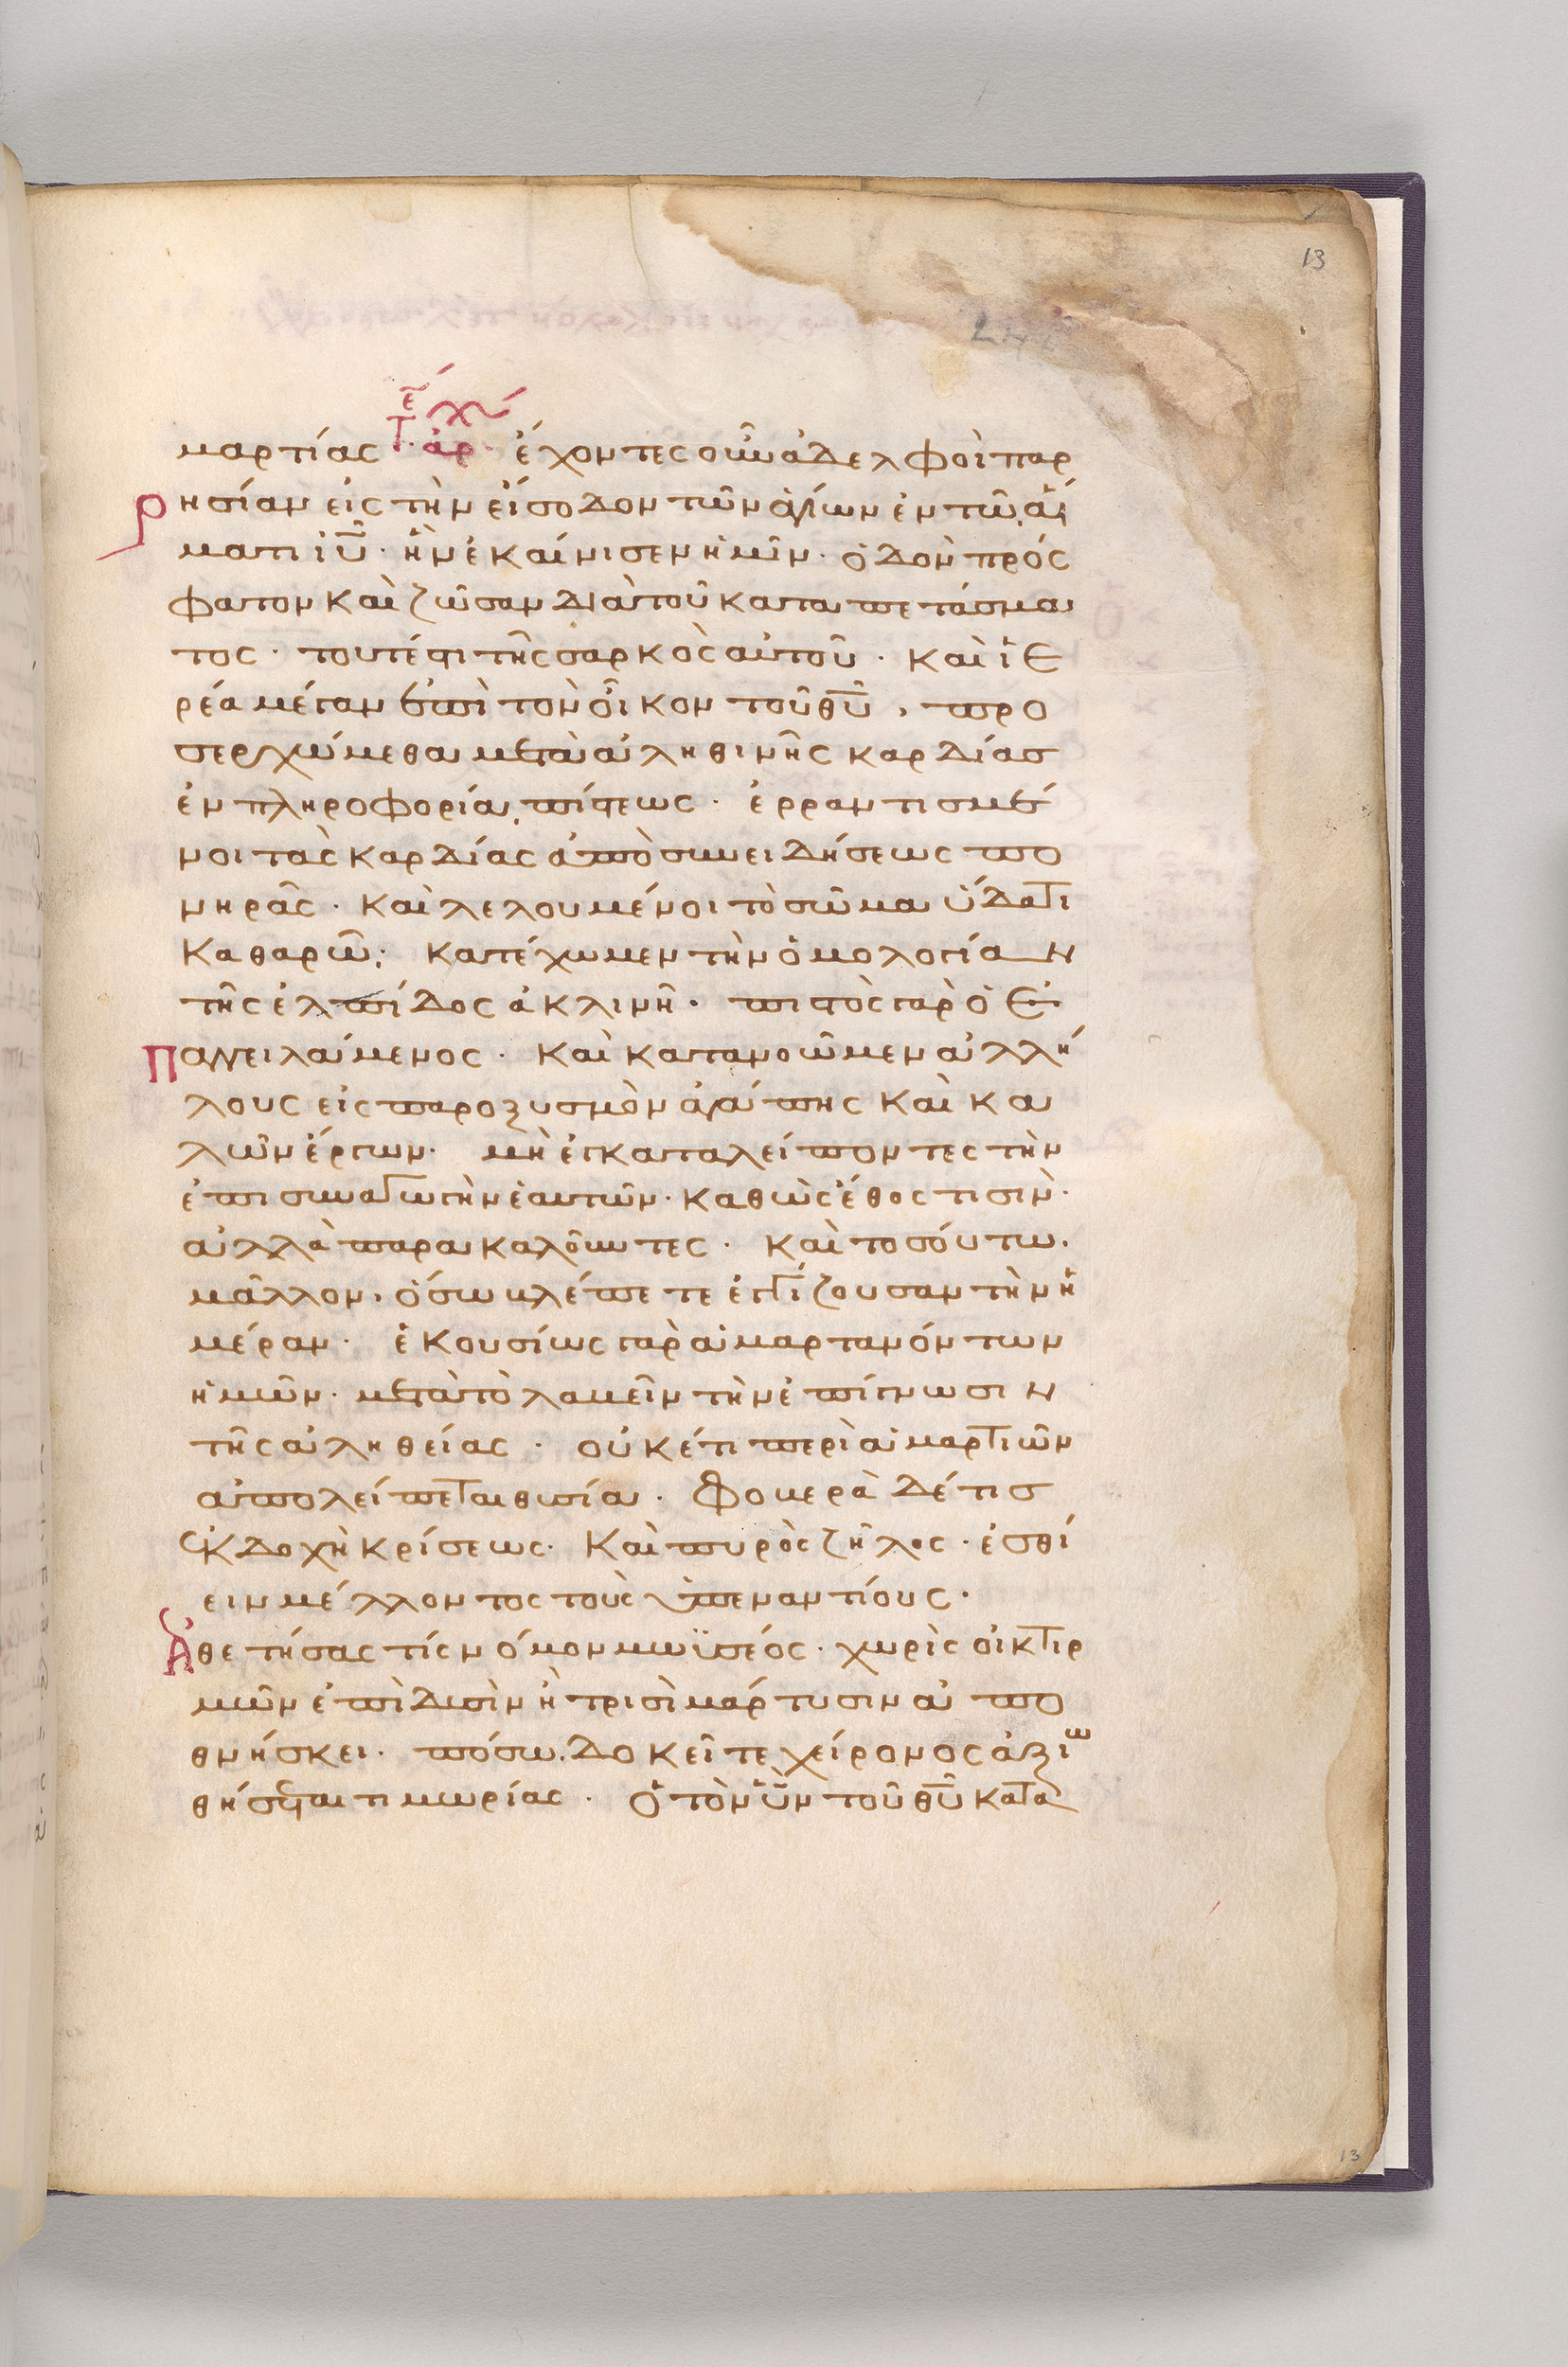 13
μαρτίας · ἀρ · ἔχοντες οὖν ἀδελφοὶ παρ
ρησίαν εἰς τὴν εἴσοδον τῶν ἁγίων ἐν τῶ αἵ
ματι ἰῦ · ἣν ἐκαίνισεν ἡμῖν · ὁδὸν πρόσ
φατον καὶ ζῶσαν διὰ τοῦ καταπετάσμα
τος · τουτέστι τῆς σαρκὸς αὐτοῦ · καὶ ἱε
ρέα μέγαν ἐπὶ τὸν οἶκον τοῦ θῦ, προ
σερχώμεθα μετὰ ἀληθινῆς καρδίας
ἐν πληροφορία πίστεως · ἐρραντισμέ
νοι τὰς καρδίας ἀπὸ συνειδήσεως πο
νηρᾶς · καὶ λελουμένοι τὸ σῶμα ὕδατι
καθαρῶ · κατέχωμεν τὴν ὁμολογίαν
τῆς ἐλπίδος ἀκλινῆ · πιστὸς γὰρ ὁ ἐ
παγγειλάμενος · καὶ κατανοῶμεν ἀλλή
λους εἰς παροξυσμὸν ἀγάπης καὶ κα
λῶν ἔργων · μὴ ἐγκαταλείποντες τὴν
ἐπισυναγωγὴν ἑαυτῶν · καθὼς ἔθος τισὶν ·
ἀλλὰ παρακαλοῦντες · καὶ τοσόυτω ·
μᾶλλον, ὅσω βλέπετε ἐγγίζουσαν τὴν ἡ
μέραν · ἑκουσίως γὰρ ἁμαρτανόντων
ἡμῶν · μετὰ τὸ λαβεῖν τὴν ἐπίγνωσιν
τῆς ἀληθείας · οὐκέτι περὶ ἁμαρτιῶν
ἀπολείπεται θυσία · φοβερὰ δέ τις
ἐκδοχὴ κρίσεως · καὶ πυρὸς ζῆλος · ἐσθί
ειν μέλλοντος τοὺς ὑπεναντίους ·
Ἀθετήσας τίς νόμον μωϋσέος · χωρὶς οἰκτιρ
μῶν ἐπὶ δυσὶν ἢ τρισὶ μάρτυσιν ἀπο
θνήσκει · πόσω δοκεῖτε χείρονος ἀξιω
θήσεται τιμωρίας · ὁ τὸν ὑῦν τοῦ θῦ κατα
13